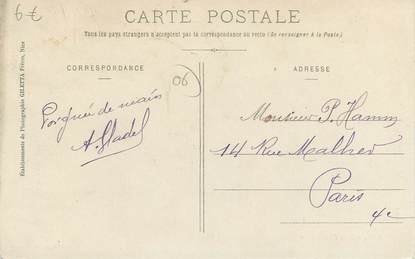 6€
CARTE POSTALE
Tous les pays étrangers n'acceptent pas la correspondance au recto (Se renseigner à la Poste).
CORRESPONDANCE
ADRESSE
06
Poignée de main
A. Gladel
Monsieur P. Hamm
14 Rue Malher
Paris
4e
Etablissements de Photographie GILETTA Frères, Nice